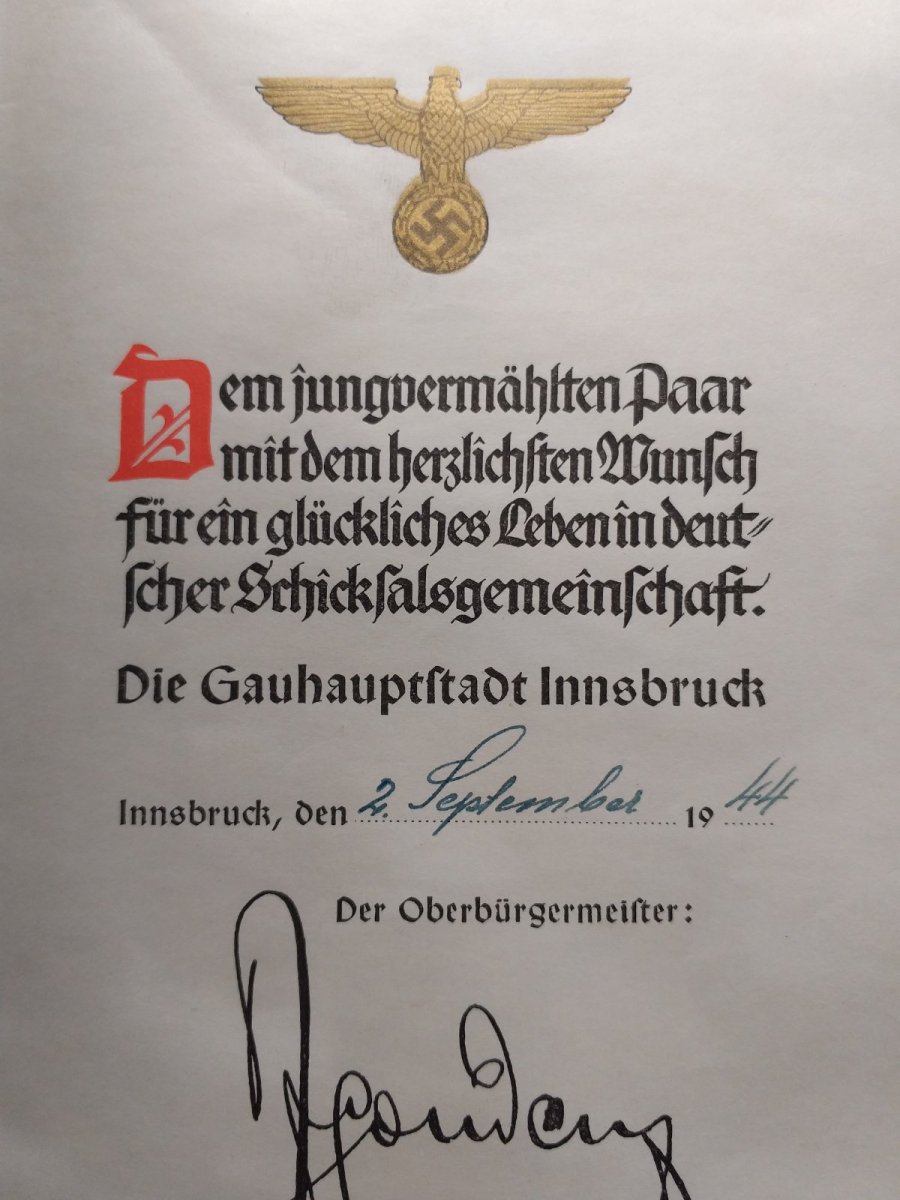 Dem jungvermählten Paar
mit dem herzlichsten Wunsch
für ein glückliches Leben in deut-
scher Schicksalsgemeinschaft.
Die Gauhauptstadt Innsbruck
Innsbruck, den 2. September 1944
Der Oberbürgermeister: